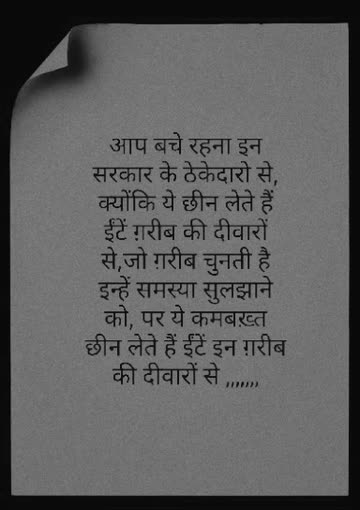 आप बचे रहना इन
सरकार के ठेकेदारो से,
क्योंकि ये छीन लेते हैं
ईंटें ग़रीब की दीवारों
से,जो ग़रीब चुनती है
इन्हें समस्या सुलझाने
को, पर ये कमबख़्त
छीन लेते हैं ईंटें इन ग़रीब
की दीवारों से ,,,,,,,